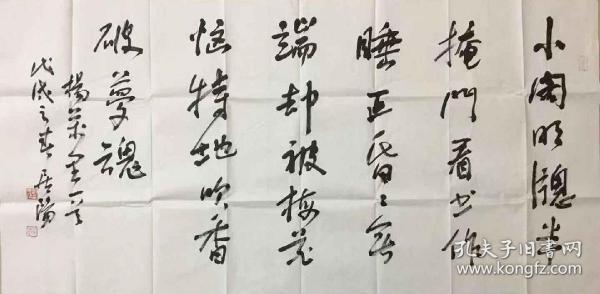 小阁明窗半
掩門看书作
睡正昏昏無
端却被梅花
恼特地吹香
破夢魂
楊萬里一首
戊戌之春
孔夫子旧書网
www.kongfz.com